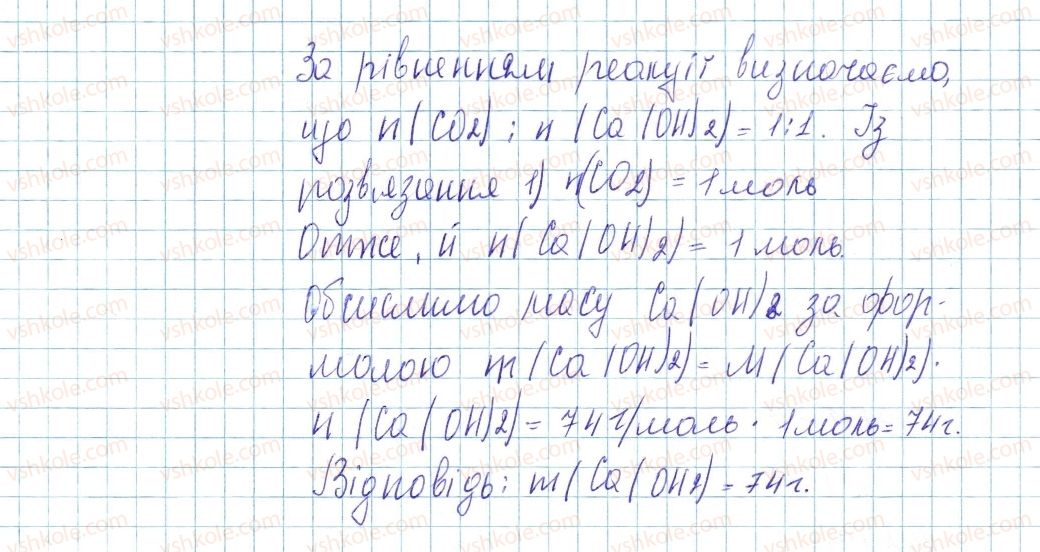 За рівненням реакції визначаємо,
що n(CO2) : n(Ca(OH)2) = 1:1. Із
розв'язання 1) n(CO2) = 1 моль
Отже, й n(Ca(OH)2) = 1 моль.
Обчислимо масу Ca(OH)2 за фор-
молою m(Ca(OH)2) = M(Ca(OH)2)·
n(Ca(OH)2) = 74 г/моль · 1 моль = 74 г.
Відповідь: m(Ca(OH2) = 74 г.